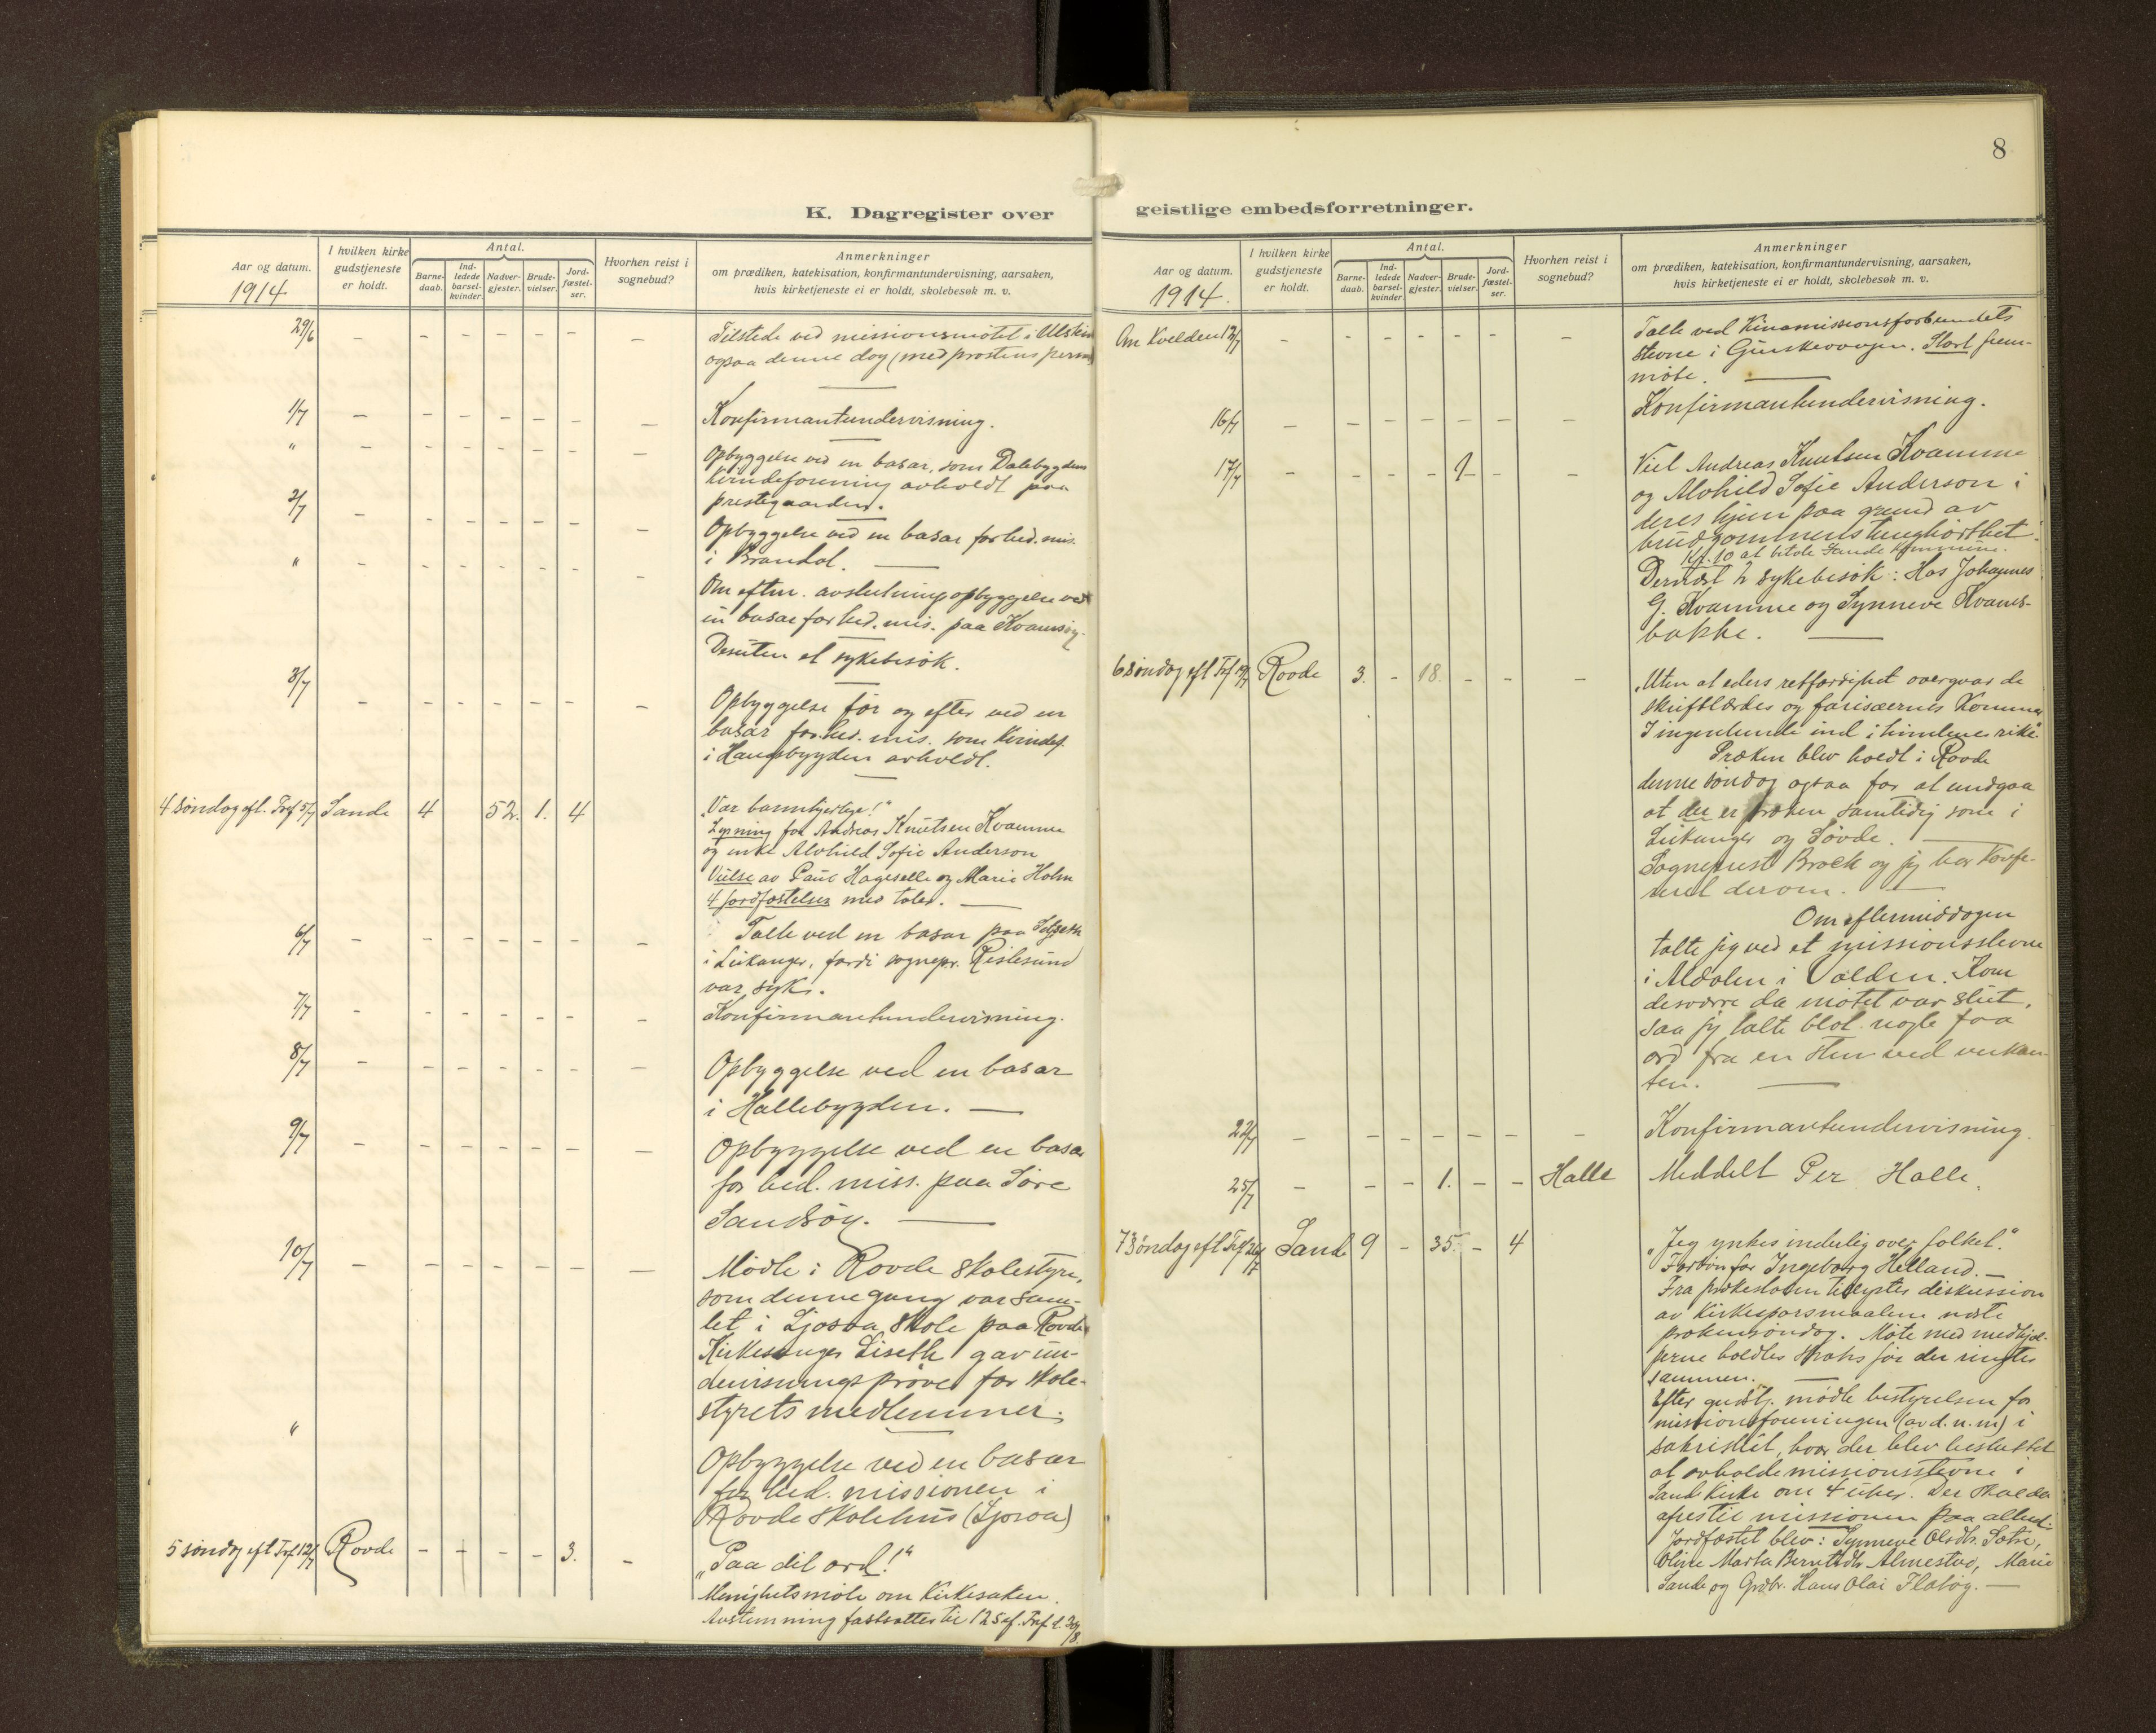 8
K. Dagregister over geistlige embedsforretninger.
Aar og datum.
1914
I hvilken kirke
gudstjeneste
er holdt.
Antal.
Barne-
daab.
Ind-
ledede
barsel-
kvinder.
Nadver-
gjester.
Brude-
vielser.
Jord-
fæstel-
ser.
Hvorhen reist i
sognebud?
Anmerkninger
om prædiken, katekisation, konfirmantundervisning, aarsaken,
hvis kirketjeneste ei er holdt, skolebesøk m. v.
29/6 - - - - - - -
Tilstede ved missionsmötet i Ulstein
ogsaa denne dag (med prostens perm)
1/7 - - - - - - -
Konfirmantundervisning.
" - - - - - - -
Opbyggelse ved en basar, som Dalebygdens
kvindeforening avholdt paa
prestegaarden.
2/7 - - - - - - -
Opbyggelse ved en basar for hed. mis.
i Brandal.
" - - - - - - -
Om efterm. avslutningsopbyggelse ved
en basar for hed. mis. paa Kvamsöy.
Desuten et sykebesök.
3/7 - - - - - - -
Opbyggelse för og efter ved en
basar for hed. mis. som kvindef.
i Haugsbygden avholdt.
4 söndag eft. Tref 5/7 Sande 4 52. 1. 4
"Vær barmhjertige!"
Lysning for Andreas Knutsen Kvamme
og enke Alvhild Sofie Anderson
Vielse av Paul Hageselle og Marie Holm
4 jordfæstelser med taler.
6/7 - - - - - - -
Talte ved en basar paa Selsæth
i Leikanger, fordi sognepr. Ristesund
var syk.
7/7 - - - - - - -
Konfirmantundervisning.
8/7 - - - - - - -
Opbyggelse ved en basar
i Hallebygden.
9/7 - - - - - - -
Opbyggelse ved en basar
for hed. miss. paa Söre
Sandsöy.
10/7 - - - - - - -
Mödte i Rovde skolestyre,
som denne gang var sam-
let i Ljosaa skole paa Rovde
Kirkesanger Liseth gav un-
dervisningspröver for skole-
styrets medlemmer.
"
Opbyggelse ved en basar
for hed. missionen i
Rovde skolehus (Ljosaa)
5 söndag eft Tref. 12/7 Rovde - - - - 3. -
"Paa dit ord!"
Menighetsmöte om kirkesaken.
Avstemning fastsattes til 12 s ef. Tref. d. 30/8.
Aar og datum.
1914.
I hvilken kirke
gudstjeneste
er holdt.
Antal.
Barne-
daab.
Ind-
ledede
barsel-
kvinder.
Nadver-
gjester.
Brude-
vielser.
Jord-
fæstel-
ser.
Hvorhen reist i
sognebud?
Anmerkninger
om prædiken, katekisation, konfirmantundervisning, aarsaken,
hvis kirketjeneste ei er holdt, skolebesøk m. v.
Om Kvelden 12/7 - - - - - - -
Talte ved Kinamissionsforbundets
stevne i Gjuskevaagen. Stort frem-
möte.
16/7 - - - - - - -
Konfirmantundervisning.
17/7 - - - - 1 - -
Viet Andreas Knutsen Kvamme
og Alvhild Sofie Anderson i
deres hjem paa grund av
brudgommens tunghörthet.
Kr. 10 at betale Sande kommune.
Dernæst 2 sykebesök: Hos Johannes
G. Kvamme og Synneve Kvams-
bakke.
6 söndag eft Tref 19/7 Rovde 3. - 18. - - -
"Uten at eders retfærdighet overgaar de
skriftlærdes og farisæernes kommer
I ingenlunde ind i himlenes rike."
Præken blev holdt i Rovde
denne söndag ogsaa for at undgaa
at der er præken samtidig som i
Leikanger og Sövde.
Sogneprest Brock og jeg har konfe-
rert derom.
Om eftermiddagen
talte jeg ved et missionsstevne
i Aldalen i Volden. Kom
desværre da mötet var slut,
saa jeg talte blot nogle faa
ord fra en sten ved veikan-
ten.
22/7 - - - - - - -
Konfirmantundervisning.
25/7 - - - 1. - - Halle
Meddelt Per Halle.
7 söndag eft Tref 26/7 Sande 9 - 35. - 4
"Jeg ynkes inderlig over folket."
Forbön for Ingeborg Helland.
Fra prækestolen tillystes diskussion
av kirkespörsmaalene næste
prækensöndag. Möte med medhjæl-
perne holdtes straks för der ringtes
sammen.
Efter gudstj. mödte bestyrelsen for
missionsforeningen (av d. n. m) i
sakristiet, hvor der blev besluttet
at avholde missionsstevne i
Sande kirke om 4 uker. Der skal da
ofres til missionen paa alteret.
Jordfæstet blev: Synneve Olsdtr. Sætre,
Oline Marta Berntsdtr Almestad, Marie
Sande og Grdbr. Hans Olai Flatöy.